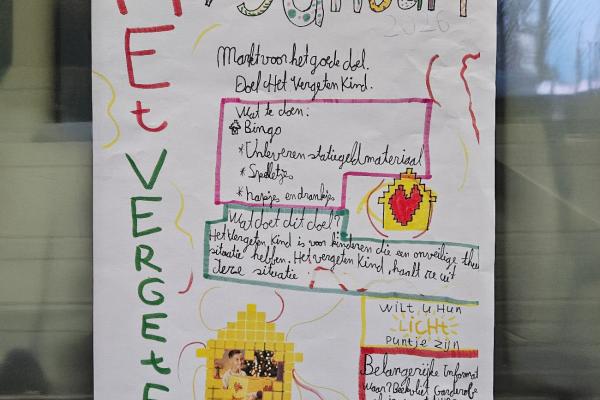 2026
HEt VERGEtE
Markt voor het goede doel.
Doel: Het Vergeten Kind.
Wat te doen:
Bingo
* Inleveren statiegeldmateriaal
* Spelletjes
* hapjes en drankjes
Wat doet dit doel?
Het Vergeten Kind is voor kinderen die een onveilige thu
situatie hebben. Het vergeten Kind, haalt ze uit
deze situatie
Wilt u Hun
LiCHT
puntje zijn
Belangerijke Informat
waar?